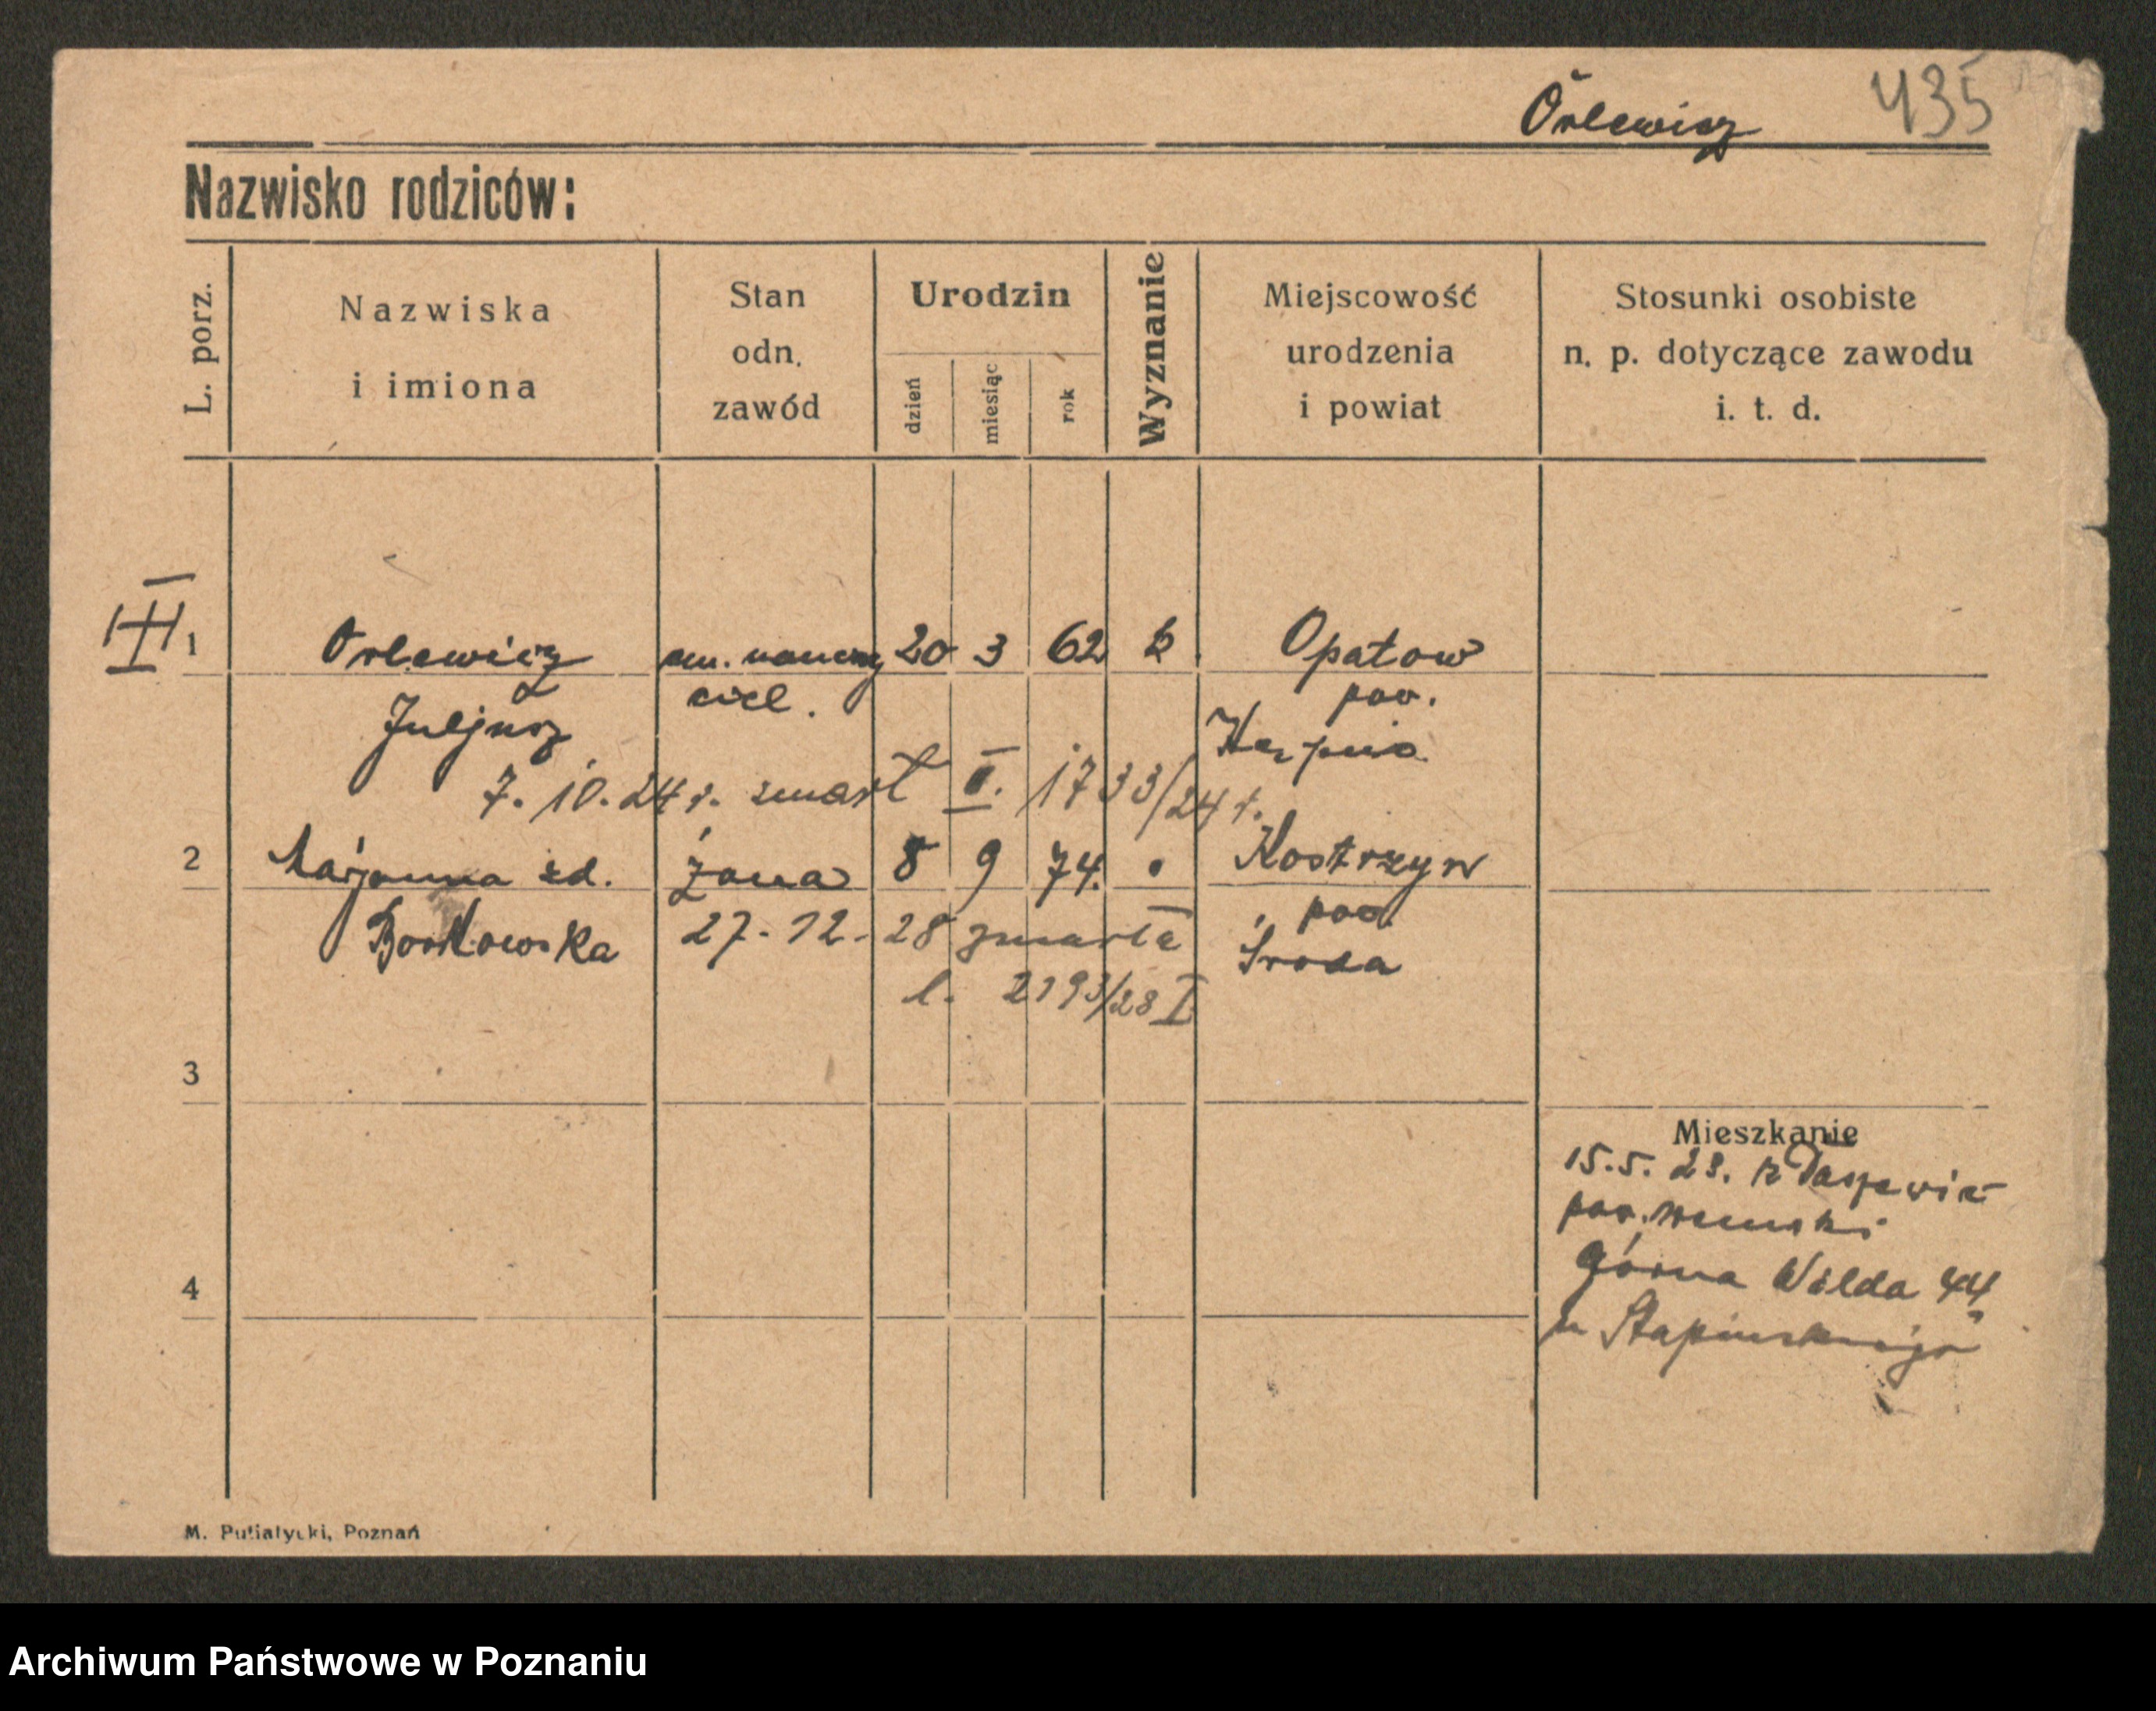 Orlewicz 435
Nazwisko rodziców:
L. porz.
Nazwiska
i imiona
Stan
odn.
zawód
Urodzin
dzień
miesiąc
rok
Wyznanie
Miejscowość
urodzenia
i powiat
Stosunki osobiste
n. p. dotyczące zawodu
i. t. d.
III 1 Orlewicz em. 20 3 62 k Opatow
Juljusz pow.
Kępno
7. 10. 24 r. zmarł II. 1733/24 r.
2 Marjanna zd. żona 8 9 74. Kostrzyn
Borkowska pow.
Środa
27. 12. 28 zmarła
l. 2193/28 I
3
Mieszkanie
15. 5. 28. z
pow.
4
Górna Wilda 44
u
M. Putiatycki, Poznań
Archiwum Państwowe w Poznaniu